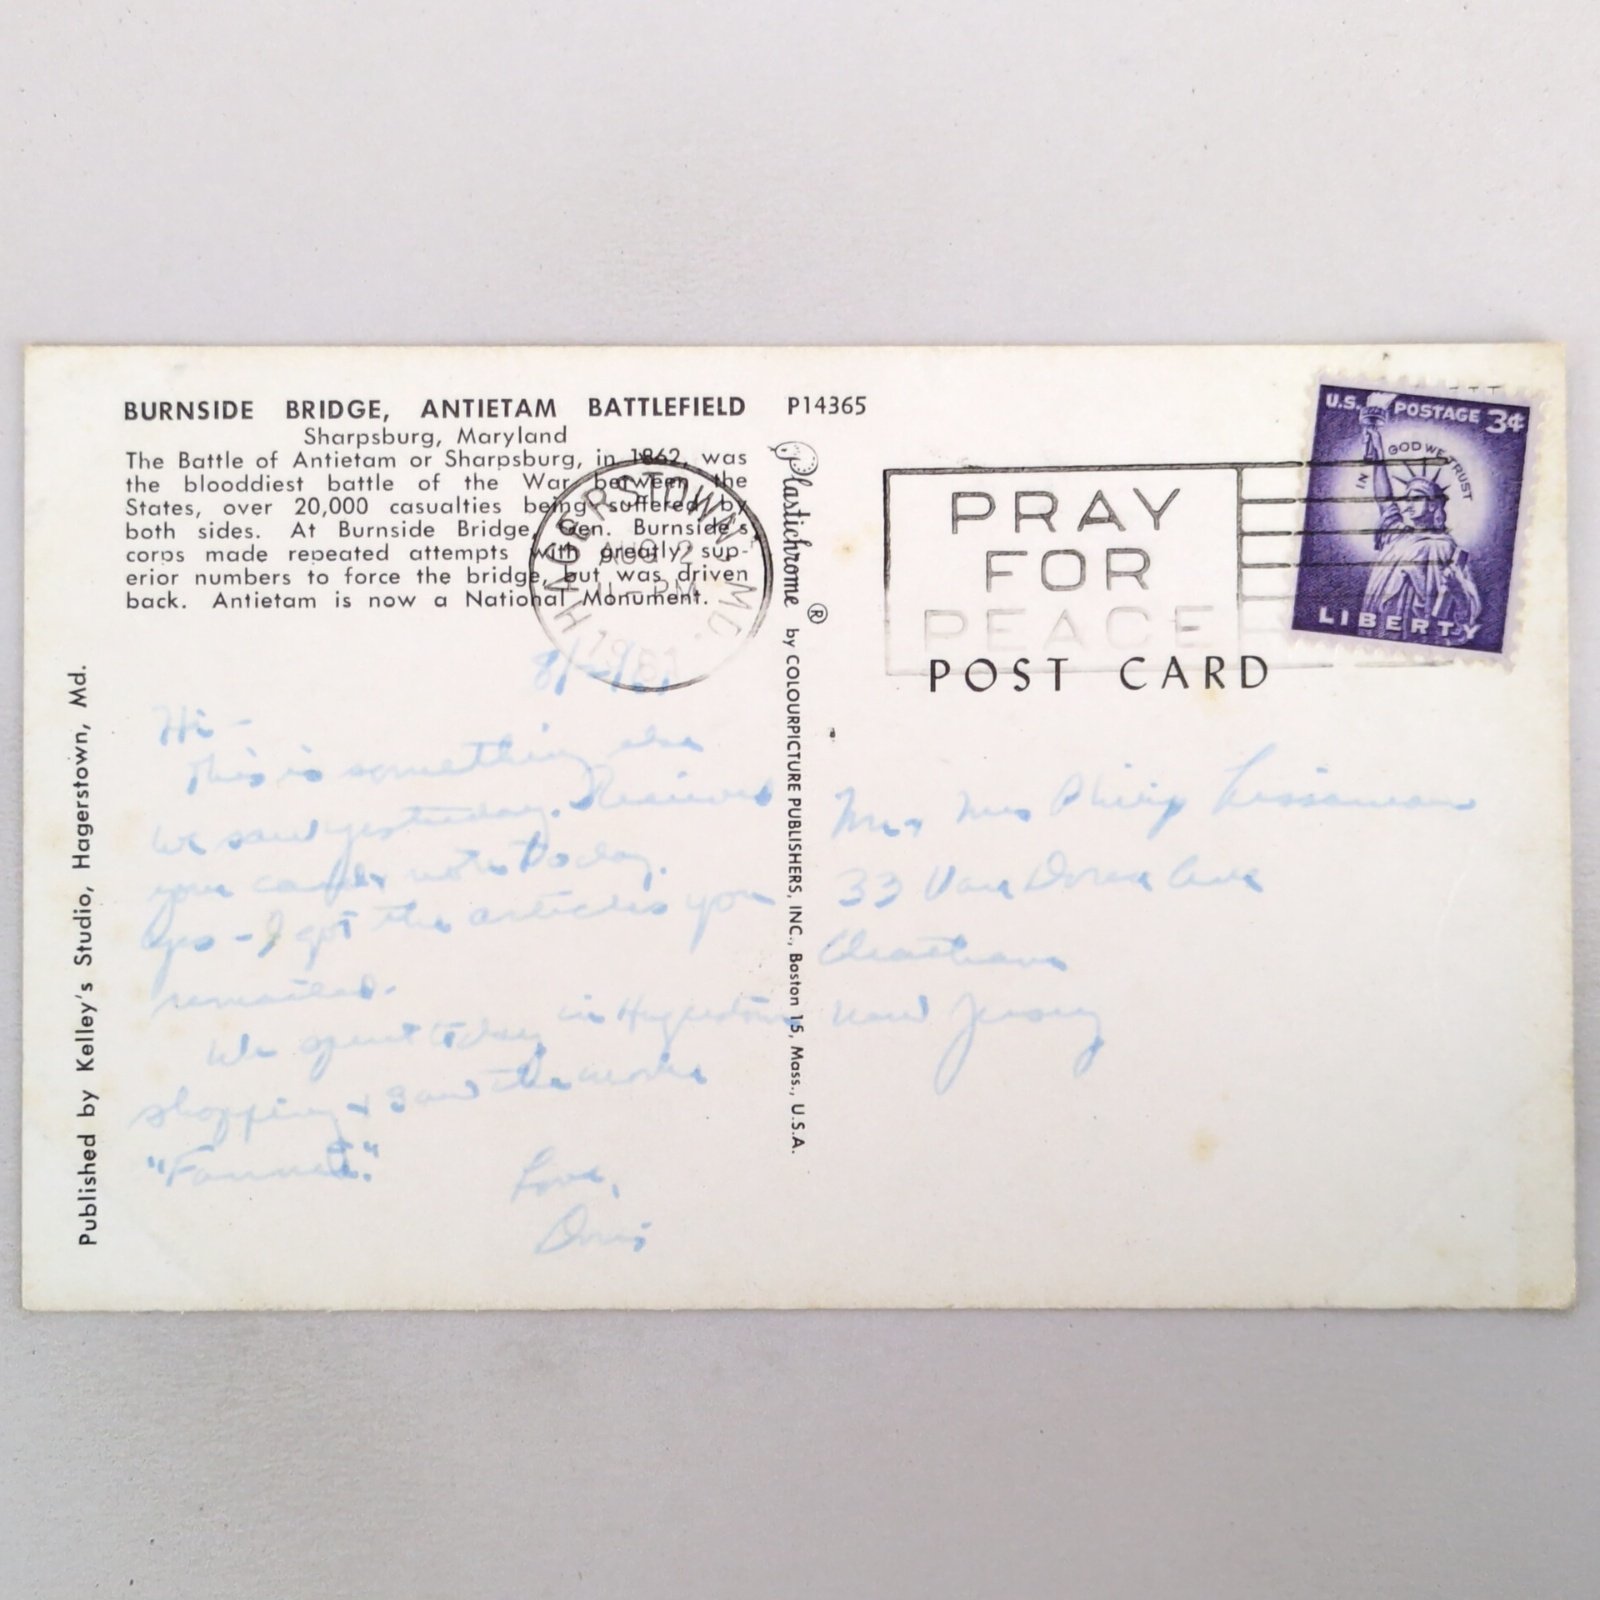 BURNSIDE BRIDGE, ANTIETAM BATTLEFIELD P14365
Sharpsburg, Maryland
The Battle of Antietam or Sharpsburg, in 1862, was
the blooddiest battle of the War between the
States, over 20,000 casualties being suffered by
both sides. At Burnside Bridge, Gen. Burnside's
corps made repeated attempts with greatly sup-
erior numbers to force the bridge, but was driven
back. Antietam is now a National Monument.
HAGERSTOWN, MD.
AUG 2
11 - PM
1961
Hi -
This is something else
we saw yesterday. Received
your card & note today.
Yes - I got the articles you
remailed.
We spent today in Hagerstown
shopping & saw the movie
"Fanny."
Love,
Doris
Published by Kelley's Studio, Hagerstown, Md.
Plastichrome ® by COLOURPICTURE PUBLISHERS, INC., Boston 15, Mass., U.S.A.
PRAY
FOR
PEACE
U.S. POSTAGE 3¢
IN GOD WE TRUST
LIBERTY
POST CARD
33 Van Doren Ave
Chatham
New Jersey